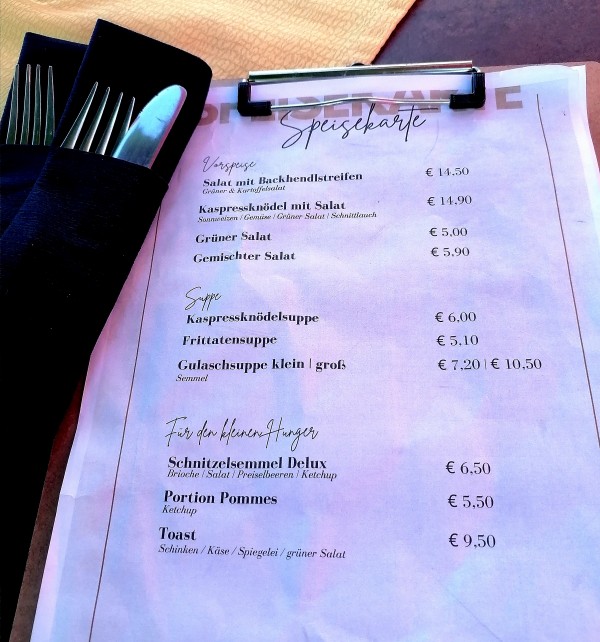 SPEISEKARTE
Speisekarte
Vorspeise
Salat mit Backhendlstreifen € 14.50
Grüner & Kartoffelsalat
Kaspressknödel mit Salat € 14,90
Sonnweizen / Gemüse / Grüner Salat / Schnittlauch
Grüner Salat € 5,00
Gemischter Salat € 5,90
Suppe
Kaspressknödelsuppe € 6,00
Frittatensuppe € 5,10
Gulaschsuppe klein | groß € 7,20 | € 10,50
Semmel
Für den kleinen Hunger
Schnitzelsemmel Delux € 6,50
Brioche / Salat / Preiselbeeren / Ketchup
Portion Pommes € 5,50
Ketchup
Toast € 9,50
Schinken / Käse / Spiegelei / grüner Salat